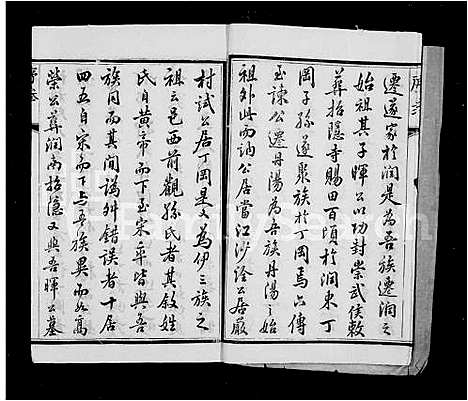 遷遂家於潤是為吾族遷潤之
始祖其子暉公以功封崇武侯敕
葬招隱寺賜田百頃於潤東丁
岡子孫遂聚族於丁岡焉六傳
至諫公遷丹陽為吾族丹陽之始
祖外此而訥公居當江沙淦公居嚴
村試公居丁岡是又為伊三族之
祖云邑西前觀孫氏者其敘姓
氏自黃帝而下至宋平皆與吾
族同而其間譌舛錯誤者十居
四五自宋而下與吾族異而如萬
榮公葬潤南招隱又與吾暉公墓